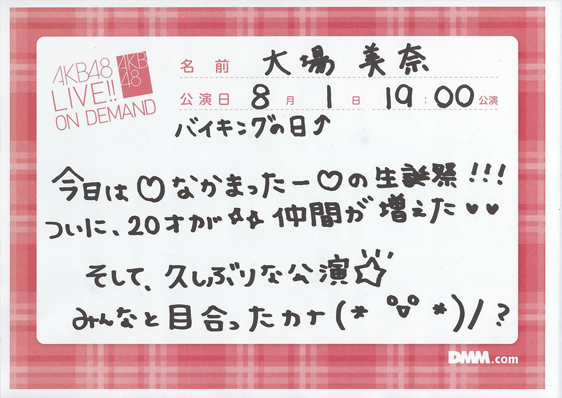 AKB48
LIVE!!
ON DEMAND
AKB
48
名前 大場 美奈
公演日 8月 1日 19:00公演
バイキングの日↑
今日は♡なかまったー♡の生誕祭!!!
ついに、20才が☆☆仲間が増えた♥♥
そして、久しぶりな公演☆
みんなと目合ったカナ(*°∀°*)/?
DMM.com